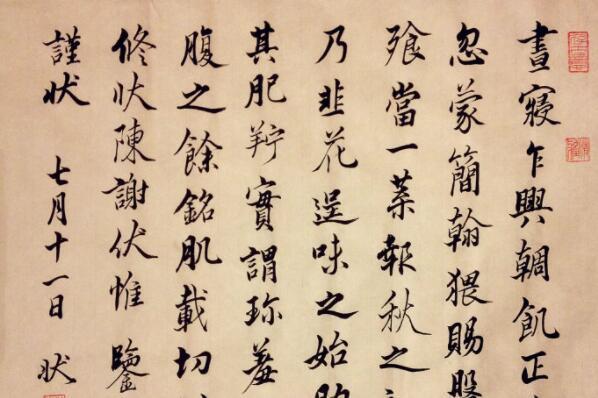 晝寢乍興朝飢正
忽蒙簡翰猥賜盤
飧當一葉報秋之
乃韭花逞味之始助
其肥羜實謂珍羞
腹之餘銘肌載切
修狀陳謝伏惟鑒
謹狀 七月十一日 狀